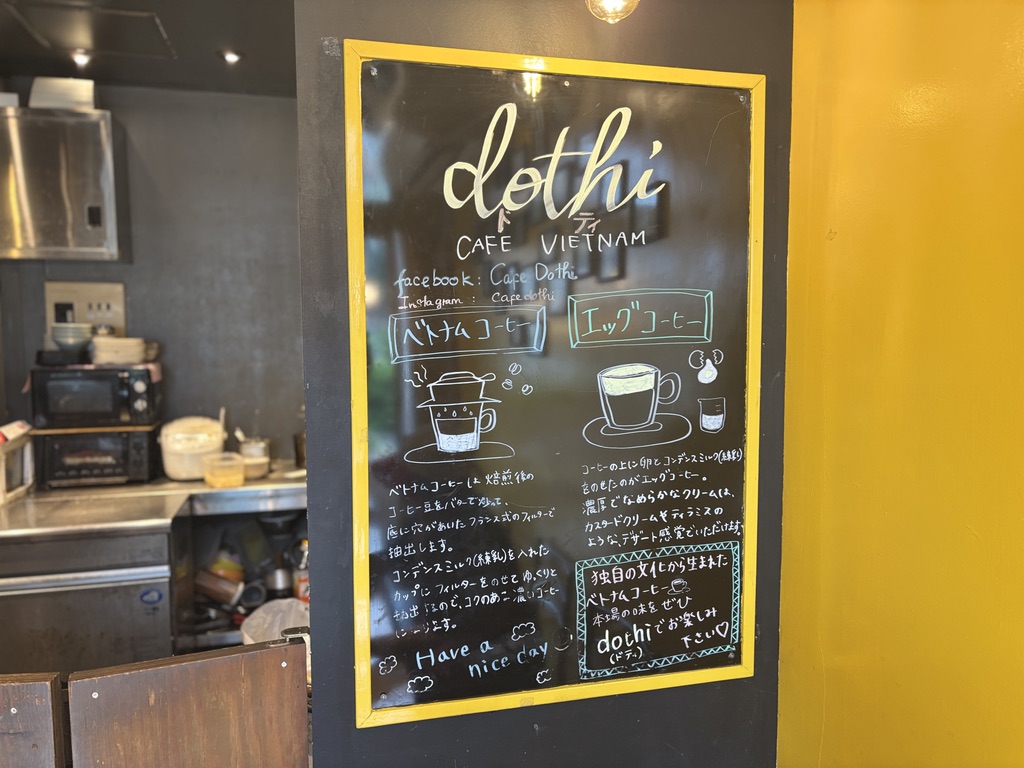 dothi
ド ティ
CAFE VIETNAM
facebook: Cafe Dothi
Instagram: cafedothi
ベトナムコーヒー
エッグコーヒー
ベトナムコーヒーは焙煎後の
コーヒー豆をバターで炒って、
底に穴があいたフランス式のフィルターで
抽出します。
コンデンスミルク(練乳)を入れた
カップにフィルターをのせてゆっくりと
抽出するので、コクのあ 濃いコーヒー
になります。
Have a
nice day
コーヒーの上に卵とコンデンスミルク(練乳)
をのせたのがエッグコーヒー。
濃厚でなめらかなクリームは、
カスタードクリームやティラミスの
ような、デザート感覚でいただけます。
独自の文化から生まれた
ベトナムコーヒー
本場の味をぜひ
dothiでお楽しみ
(ドティ)
下さい♡